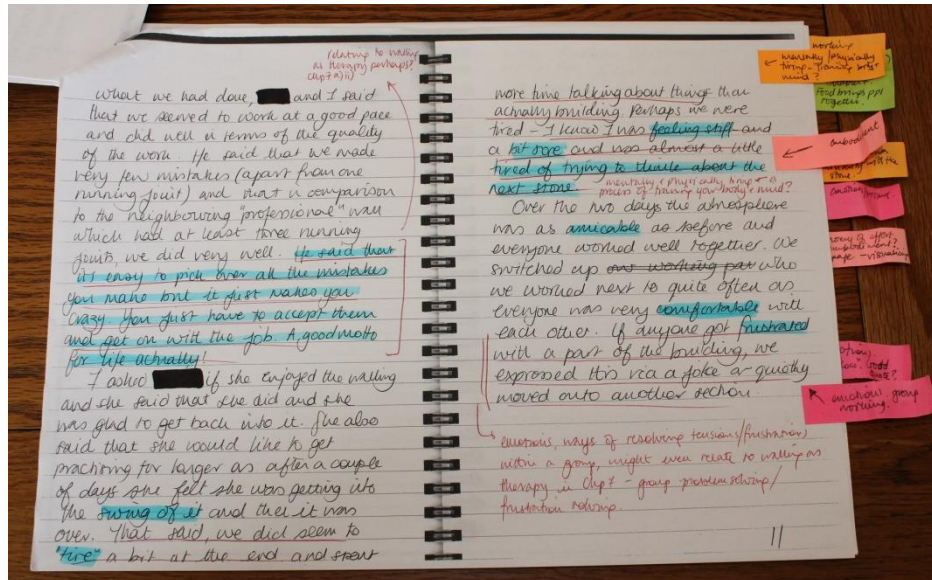 (relating to walling
as therapy perhaps?
Chp7 a)ii)
what we had done, and I said
that we seemed to work at a good pace
and did well in terms of the quality
of the work. He said that we made
very few mistakes (apart from one
running joint) and that in comparison
to the "neighbouring professional" wall
which had at least three running
joints, we did very well. He said that
it's easy to pick over all the mistakes
you make but it just makes you
crazy. You just have to accept them
and get on with the job. A good motto
for life actually!
I asked if she enjoyed the walling
and she said that she did and she
was glad to get back into it. She also
said that she would like to get
practising for longer as after a couple
of days she felt she was getting into
the swing of it and then it was
over. That said, we did seem to
"tire" a bit at the end and spent
more time talking about things than
actually building. Perhaps we were
tired - I know I was feeling stiff and
a bit sore and was almost a little
tired of trying to think about the
next stone.
mentally & physically tiring - a
process of training your body & mind?
Over the two days the atmosphere
was as amicable as before and
everyone worked well together. We
switched up our working par who
we worked next to quite often as
everyone was very comfortable with
each other. If anyone got frustrated
with a part of the building, we
expressed this via a joke or quietly
moved onto another section.
emotions, ways of resolving tensions/frustration)
within a group, might even relate to walling as
therapy in Chp7 - group problem solving/
frustration solving.
11
working
mentally/physically
tiring - training body +
mind?
Food brings ppl
together.
embodiment
with the
stone.
emotions, group
working.